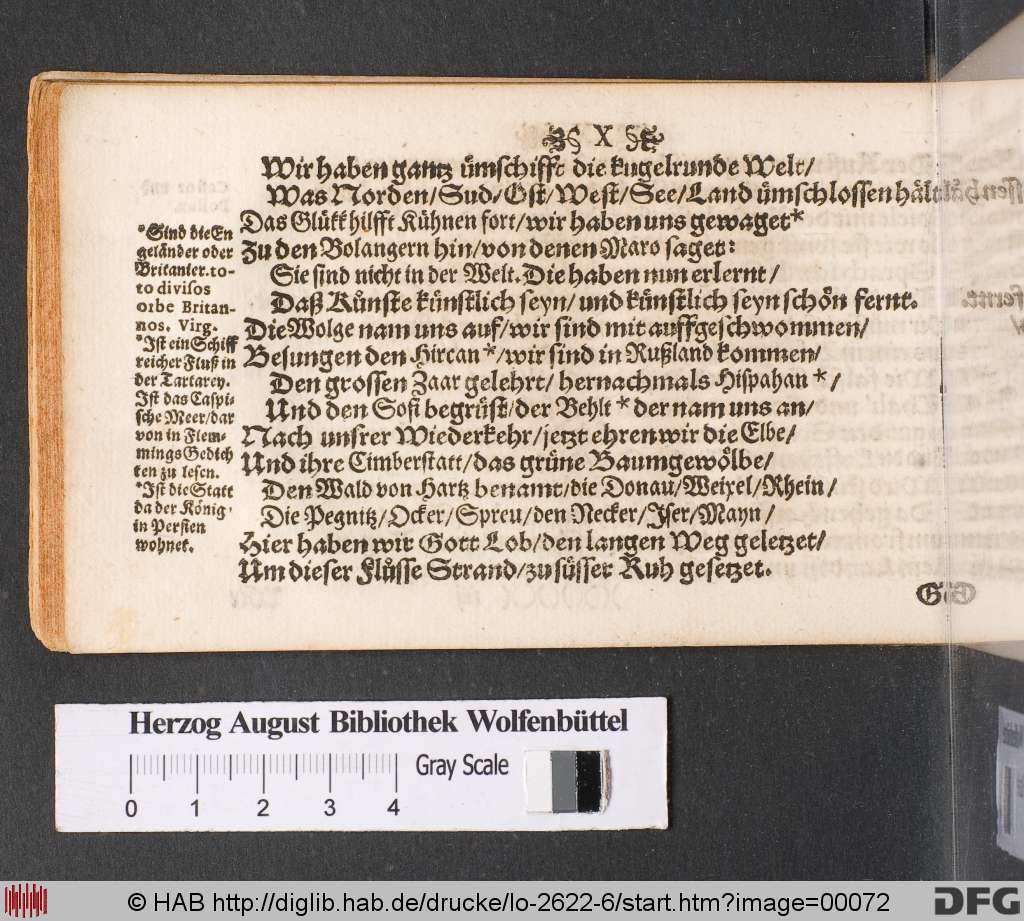 X
Wir haben gantz ümschifft die kugelrunde Welt/
Was Norden/Sud/Ost/West/See/Land ümschlossen hält/
Das Glükk hilfft Kühnen fort/wir haben uns gewaget*
Zu den Bolangern hin/von denen Maro saget:
Sie sind nicht in der Welt. Die haben nun erlernt/
Daß Künste künstlich seyn/ und künstlich seyn schön fernt.
Die Wolge nam uns auf/wir sind mit auffgeschwommen/
Besungen den Hircan*/wir sind in Rußland kommen/
Den grossen Zaar gelehrt/ hernachmals Hispahan*/
Und den Sofi begrüst/der Behlt* der nam uns an/
Nach unsrer Wiederkehr/jetzt ehren wir die Elbe/
Und ihre Cimberstatt/das grüne Baumgewölbe/
Den Wald von Hartz benamt/die Donau/Weixel/Rhein/
Die Pegnitz/Ocker/Spreu/den Necker/Iser/Mayn/
Hier haben wir Gott Lob/den langen Weg geletzet/
Um dieser Flüsse Strand/zu süsser Ruh gesetzet.
*Sind die En
geländer oder
Britanier. to-
to divisos
orbe Britan-
nos. Virg.
*Ist ein Schiff
reicher Fluß in
der Tartarey.
Ist das Caspi-
sche Meer/dar
von in Flem-
mings Gedich
ten zu lesen.
*Ist die Statt
da der König
in Persien
wohnet.
Herzog August Bibliothek Wolfenbüttel
0 1 2 3 4
Gray Scale
© HAB http://diglib.hab.de/drucke/lo-2622-6/start.htm?image=00072
DFG